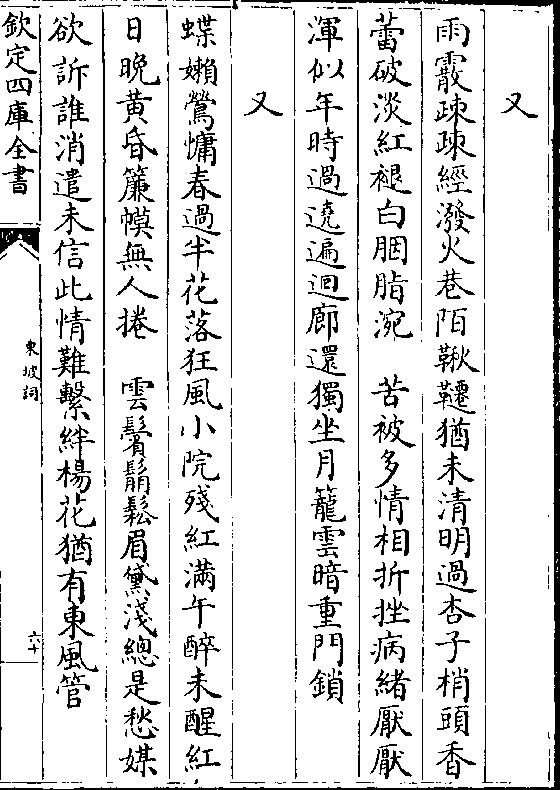 又
雨霰疎疎經潑火巷陌鞦韆猶未清明過杏子梢頭香
蕾破淡紅褪白胭脂涴　苦被多情相折挫病緒厭厭
渾似年時過遶遍迴廊還獨坐月籠雲暗重門鎖
又
蝶嬾鶯慵春過半花落狂風小院殘紅滿午醉未醒紅
日晚黄昏簾幙無人捲　雲鬢鬅鬆眉黛淺總是愁媒
欲訴誰消遣未信此情難繫絆楊花猶有東風管
欽定四庫全書
東坡詞
六十